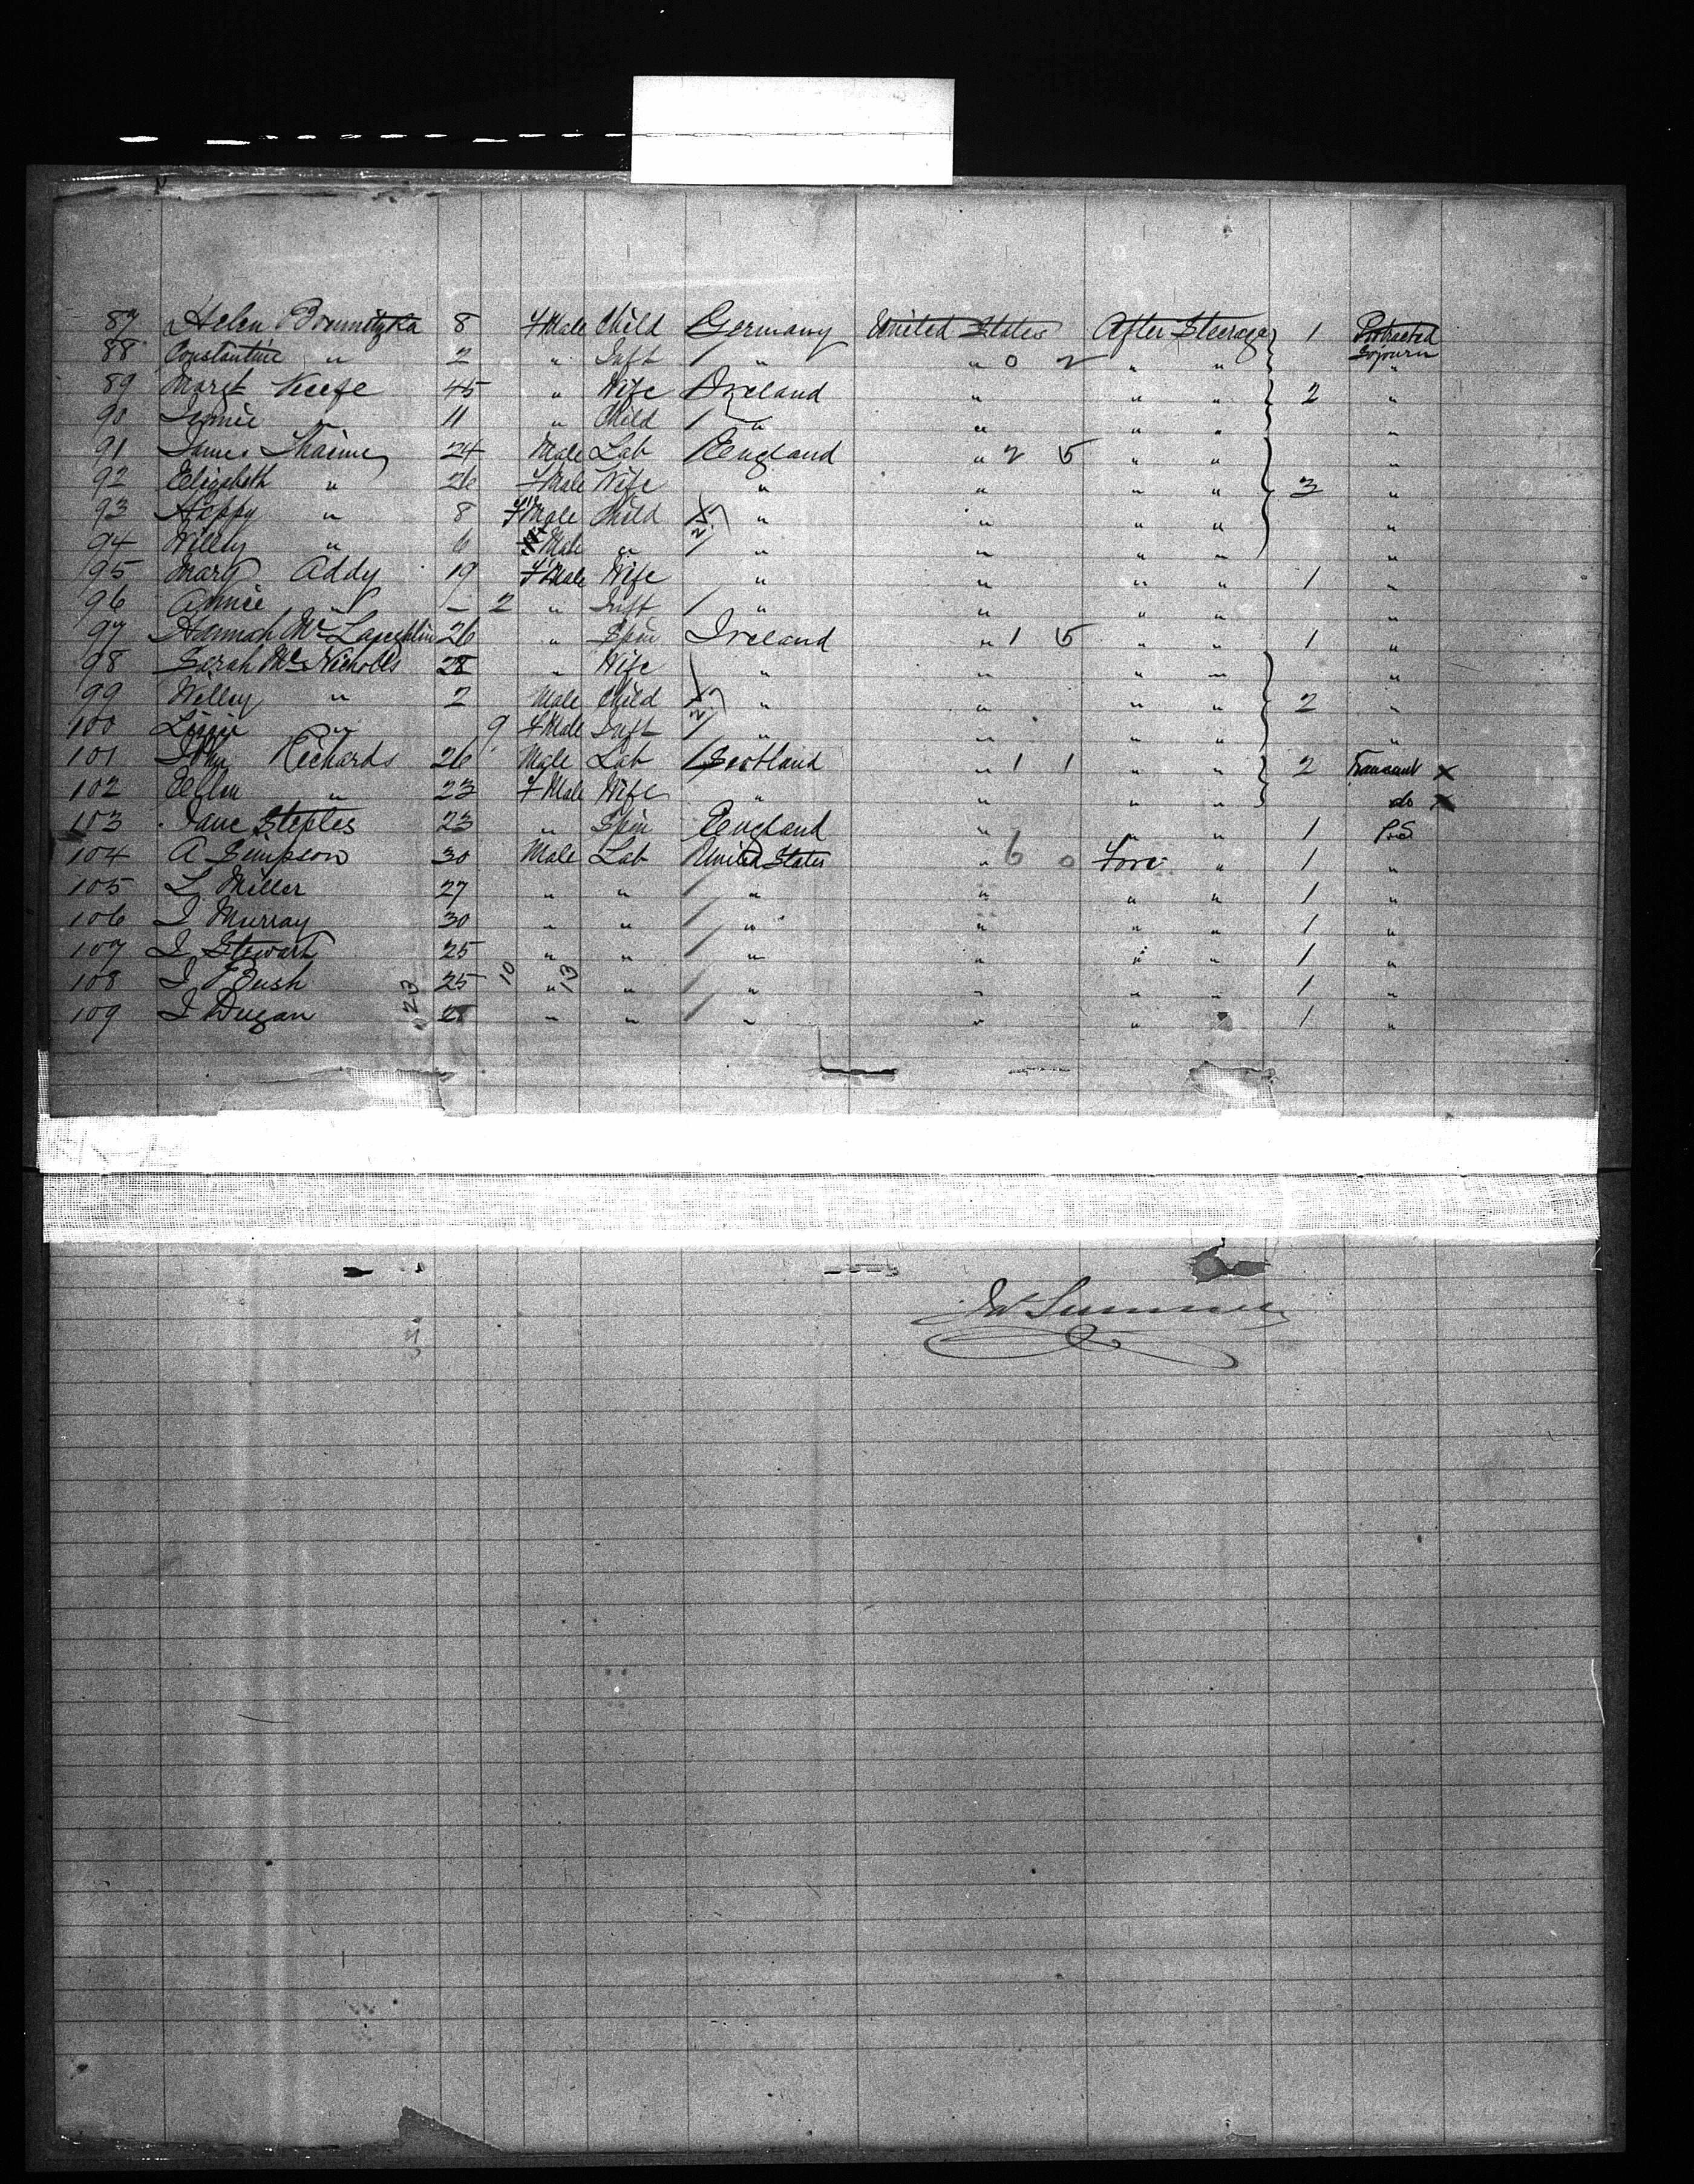 87 Helen 8 F Male Child Germany United States After Steerage 1 Protracted Sojourn
88 Constantine " 2 " Inft / " " 0 2 " " "
89 Margt Keefe 45 " Wife Ireland " " " 2 "
90 Jennie " 11 " Child / " " " " "
91 James 24 Male Lab England " 2 5 " " "
92 Elizabeth " 26 F Male Wife " " " " 3 "
93 " 8 Male Child " " " " "
94 Willy " 6 Male " " " " " "
95 Mary Addy 19 F Male Wife " " " " 1 "
96 Annie " - 2 " Inft / " " " " "
97 Hannah 26 " Spin Ireland " 1 5 " " 1 "
98 Sarah McNicholls 28 " Wife " " " " "
99 Willy " 2 Male Child " " " " 2 "
100 Lizzie " 9 F Male Inft " " " " "
101 John Richards 26 Male Lab Scotland " 1 1 " " 2 Transant X
102 Ellen " 23 F Male Wife " " " " do X
103 Jane Steples 23 " Spin England " " " 1 P.S
104 A Simpson 30 Male Lab United States " 6 0 Fore " 1 "
105 L Miller 27 " " / " " " " 1 "
106 J Murray 30 " " / " " " " 1 "
107 J Stewart 25 " " / " " " " 1 "
108 J Bush 25 " " / " " " " 1 "
109 J Dugan 28 " " / " " " " 1 "
23 10 13